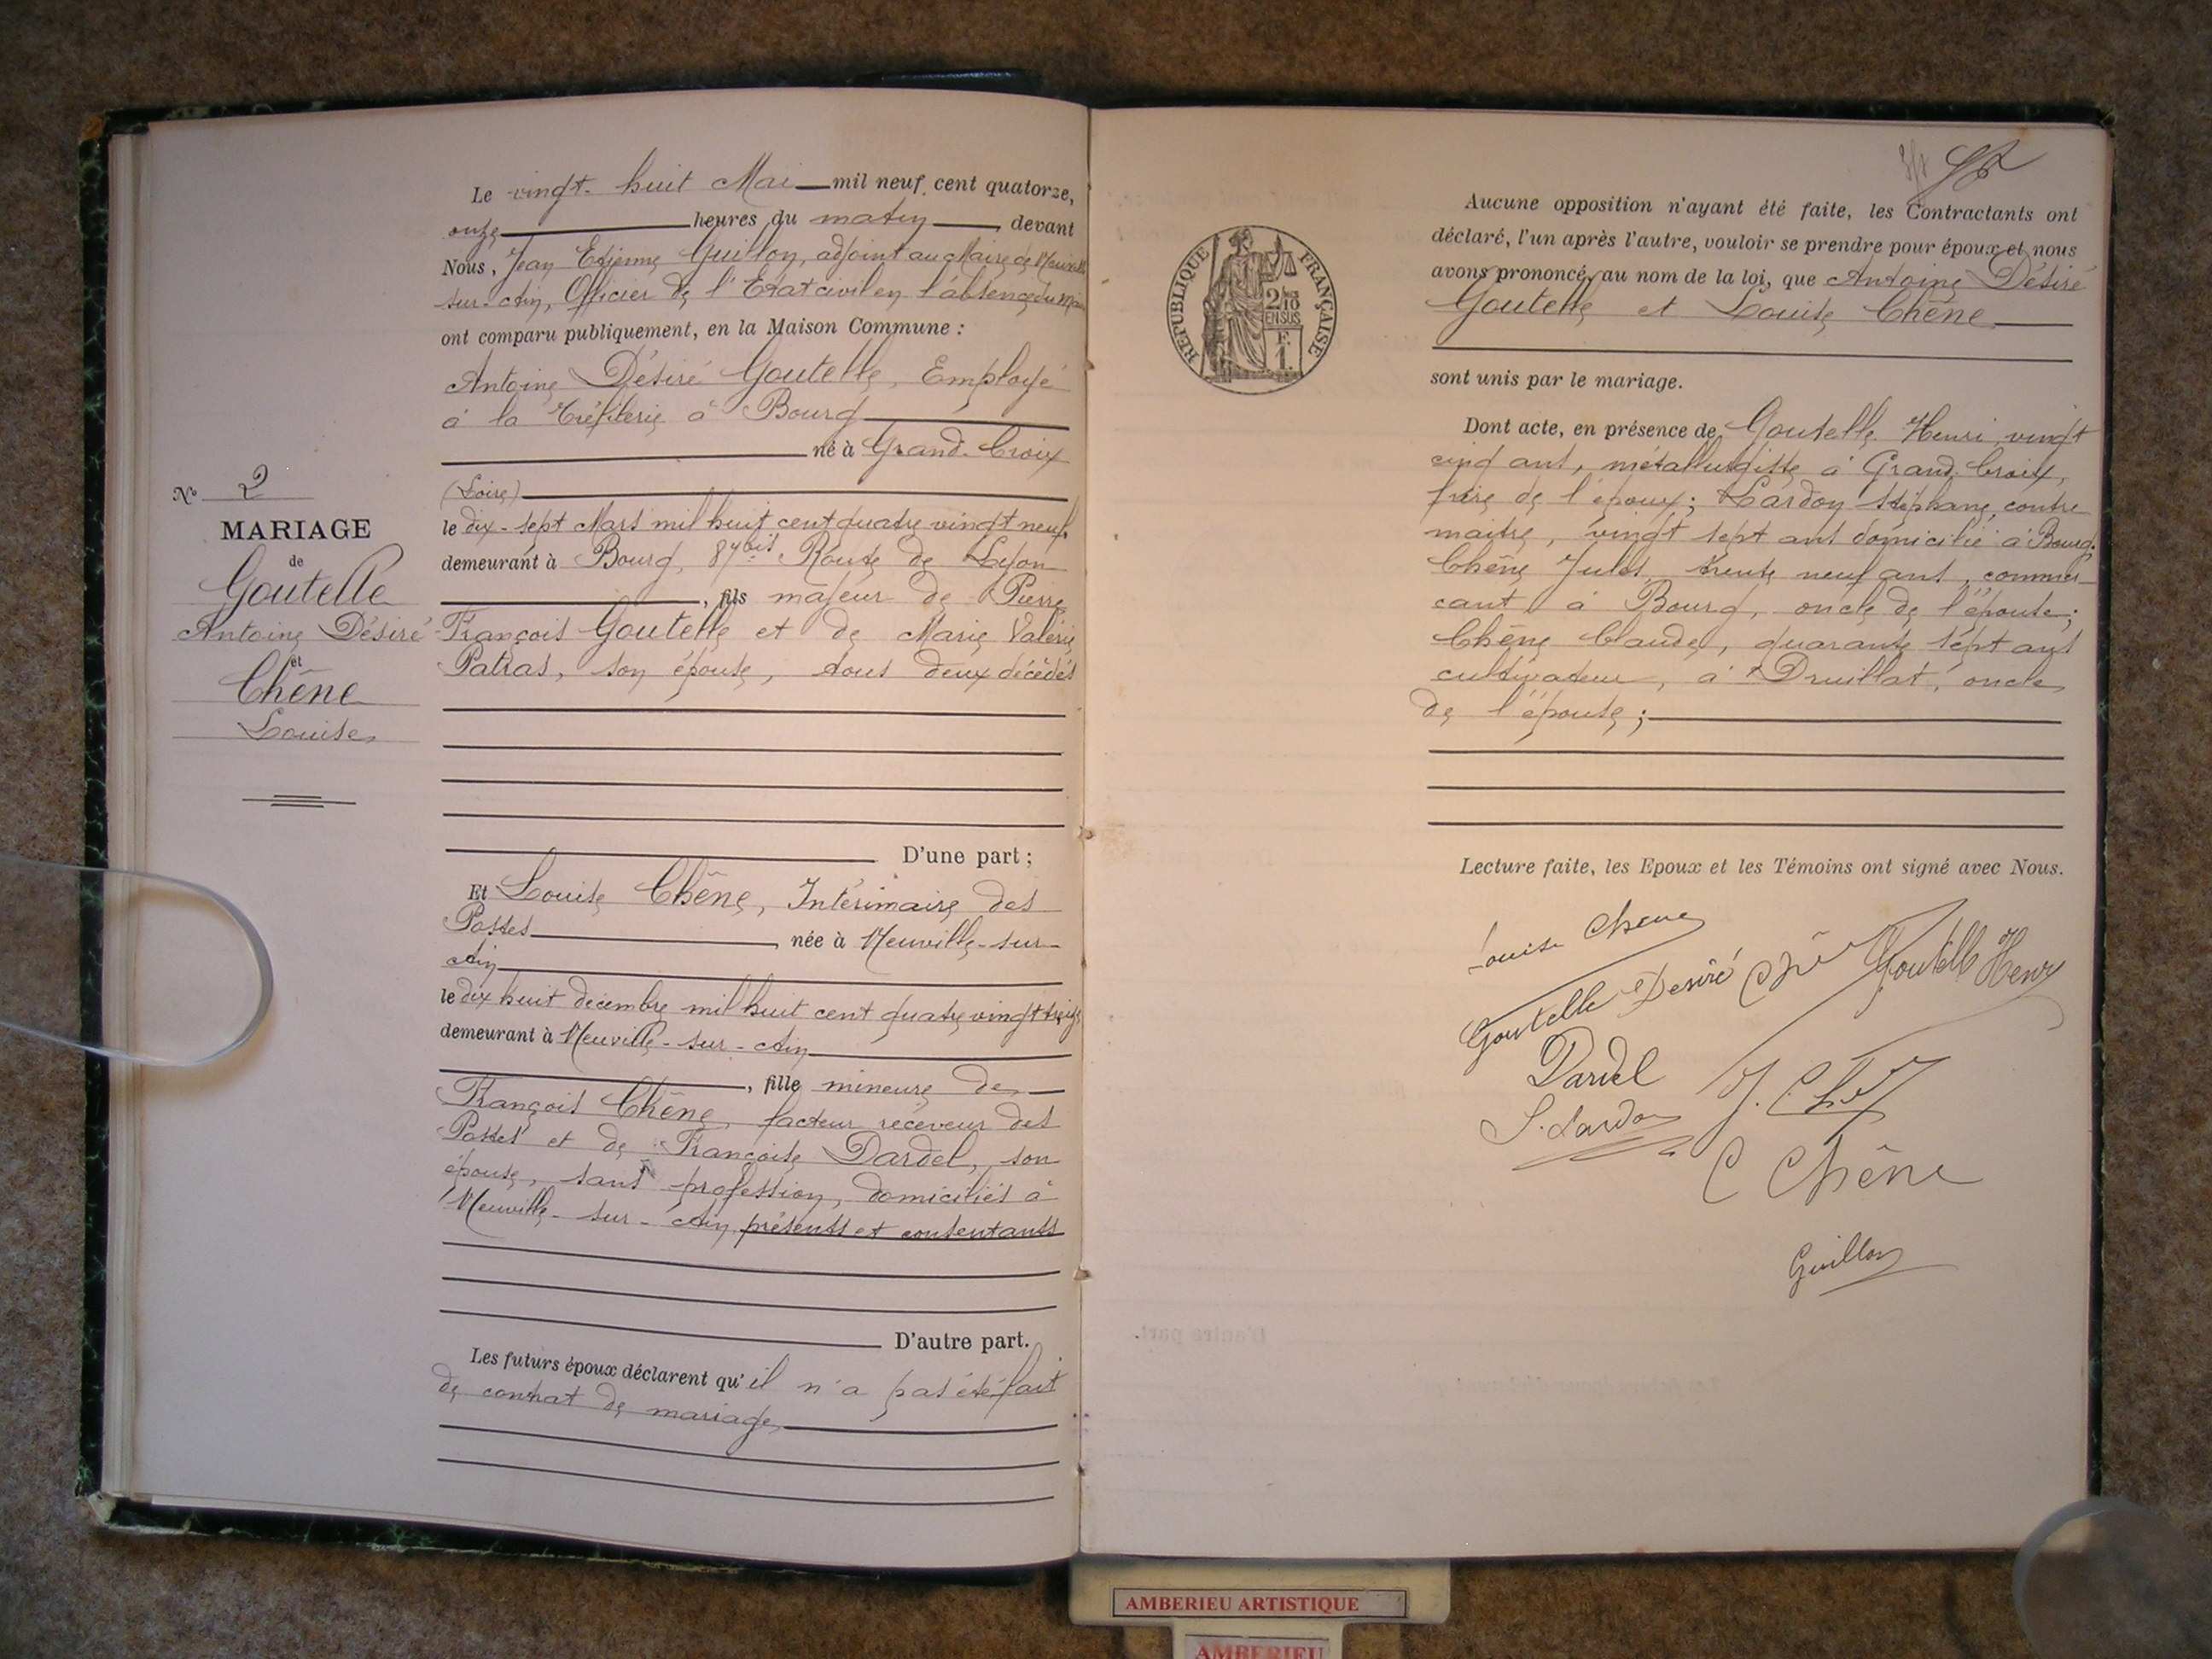 Le vingt-huit Mai mil neuf cent quatorze,
onze heures du matin, devant
Nous, Jean Etienne Guillon, adjoint au Maire de Neuville
sur-Ain, Officier de l'Etat civil en l'absence du Maire
ont comparu publiquement, en la Maison Commune :
Antoine Désiré Goutelle, Employé
à la Tréfilerie à Bourg
né à Grand-Croix
(Loire)
le dix-sept Mars mil huit cent quatre vingt neuf
demeurant à Bourg, 87bis Route de Lyon
, fils majeur de Pierre
François Goutelle et de Marie Valérie
Patras, son épouse, tous deux décédés
D'une part ;
N° 2
MARIAGE
de
Goutelle
Antoine Désiré
et
Chêne
Louise
Et Louise Chêne, Intérimaire des
Postes, née à Neuville-sur-
Ain
le dix huit décembre mil huit cent quatre vingt treize
demeurant à Neuville-sur-Ain
, fille mineure de
François Chêne, facteur receveur des
Postes et de Françoise Dardel, son
épouse, sans profession, domiciliés à
Neuville-sur-Ain présents et consentants
D'autre part.
Les futurs époux déclarent qu'il n'a pas été fait
de contrat de mariage
RÉPUBLIQUE FRANÇAISE
2/10
EN SUS
F.
1.
Aucune opposition n'ayant été faite, les Contractants ont
déclaré, l'un après l'autre, vouloir se prendre pour époux et nous
avons prononcé, au nom de la loi, que Antoine Désiré
Goutelle et Louise Chêne
sont unis par le mariage.
Dont acte, en présence de Goutelle Henri, vingt
cinq ans, métallurgiste à Grand-Croix,
frère de l'époux; Lardon Stéphane, contre
maitre, vingt sept ans domicilié à Bourg;
Chêne Jules, trente neuf ans, commer-
cant à Bourg, oncle de l'épouse;
Chêne Claude, quarante sept ans
cultivateur, à Druillat, oncle
de l'épouse;
Lecture faite, les Epoux et les Témoins ont signé avec Nous.
Louise Chene
Goutelle Desiré Goutelle Henry
Dardel
S. Lardon
C Chêne
Guillon
AMBERIEU ARTISTIQUE
AMBERIEU